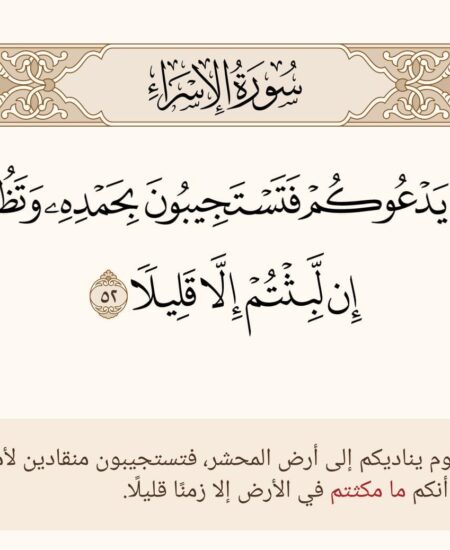 سُورَةُ الإِسْرَاءِ
يَدْعُوكُمْ فَتَسْتَجِيبُونَ بِحَمْدِهِۦ
إِن لَّبِثْتُمْ إِلَّا قَلِيلًا ٥٢
يناديكم إلى أرض المحشر، فتستجيبون منقادين
أنكم ما مكثتم في الأرض إلا زمنًا قليلًا.